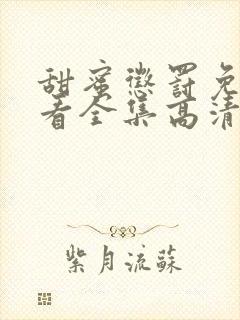 甜蜜惩罚免
看全集高清
紫月流蘇